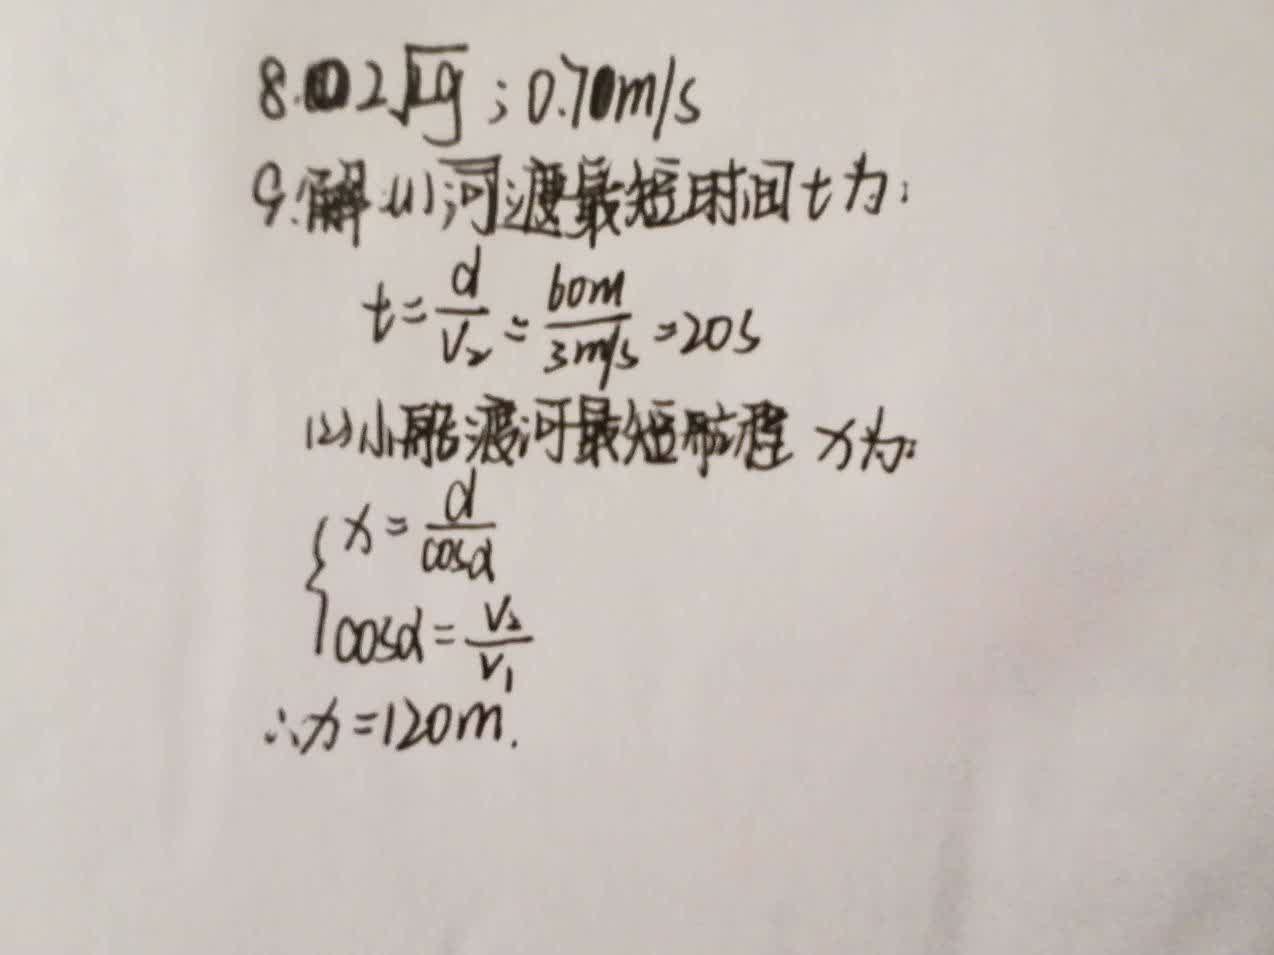 8. 2√Lg ; 0.70m/s
9.解:(1)河渡最短时间t为:
t=d/V₂=60m/3m/s=20s
(2)小船渡河最短航程 x为:
x=d/cosα
cosα=V₂/V₁
∴x=120m.